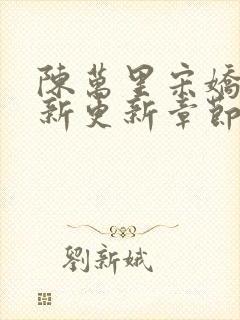 陳萬里宋嬌
新更新章節
劉新娥